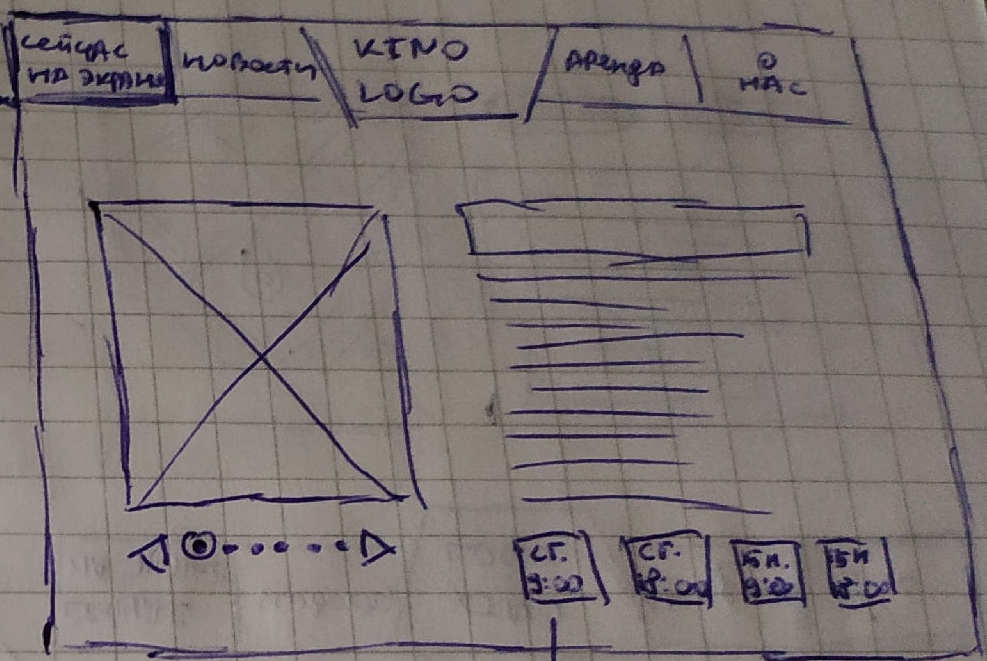 СЕЙЧАС
НА ЭКРАНЕ
НОВОСТИ
KINO
LOGO
АРЕНДА
О
НАС
СТ.
9:00
СТ.
18:00
ПН.
9:00
ПН
18:00